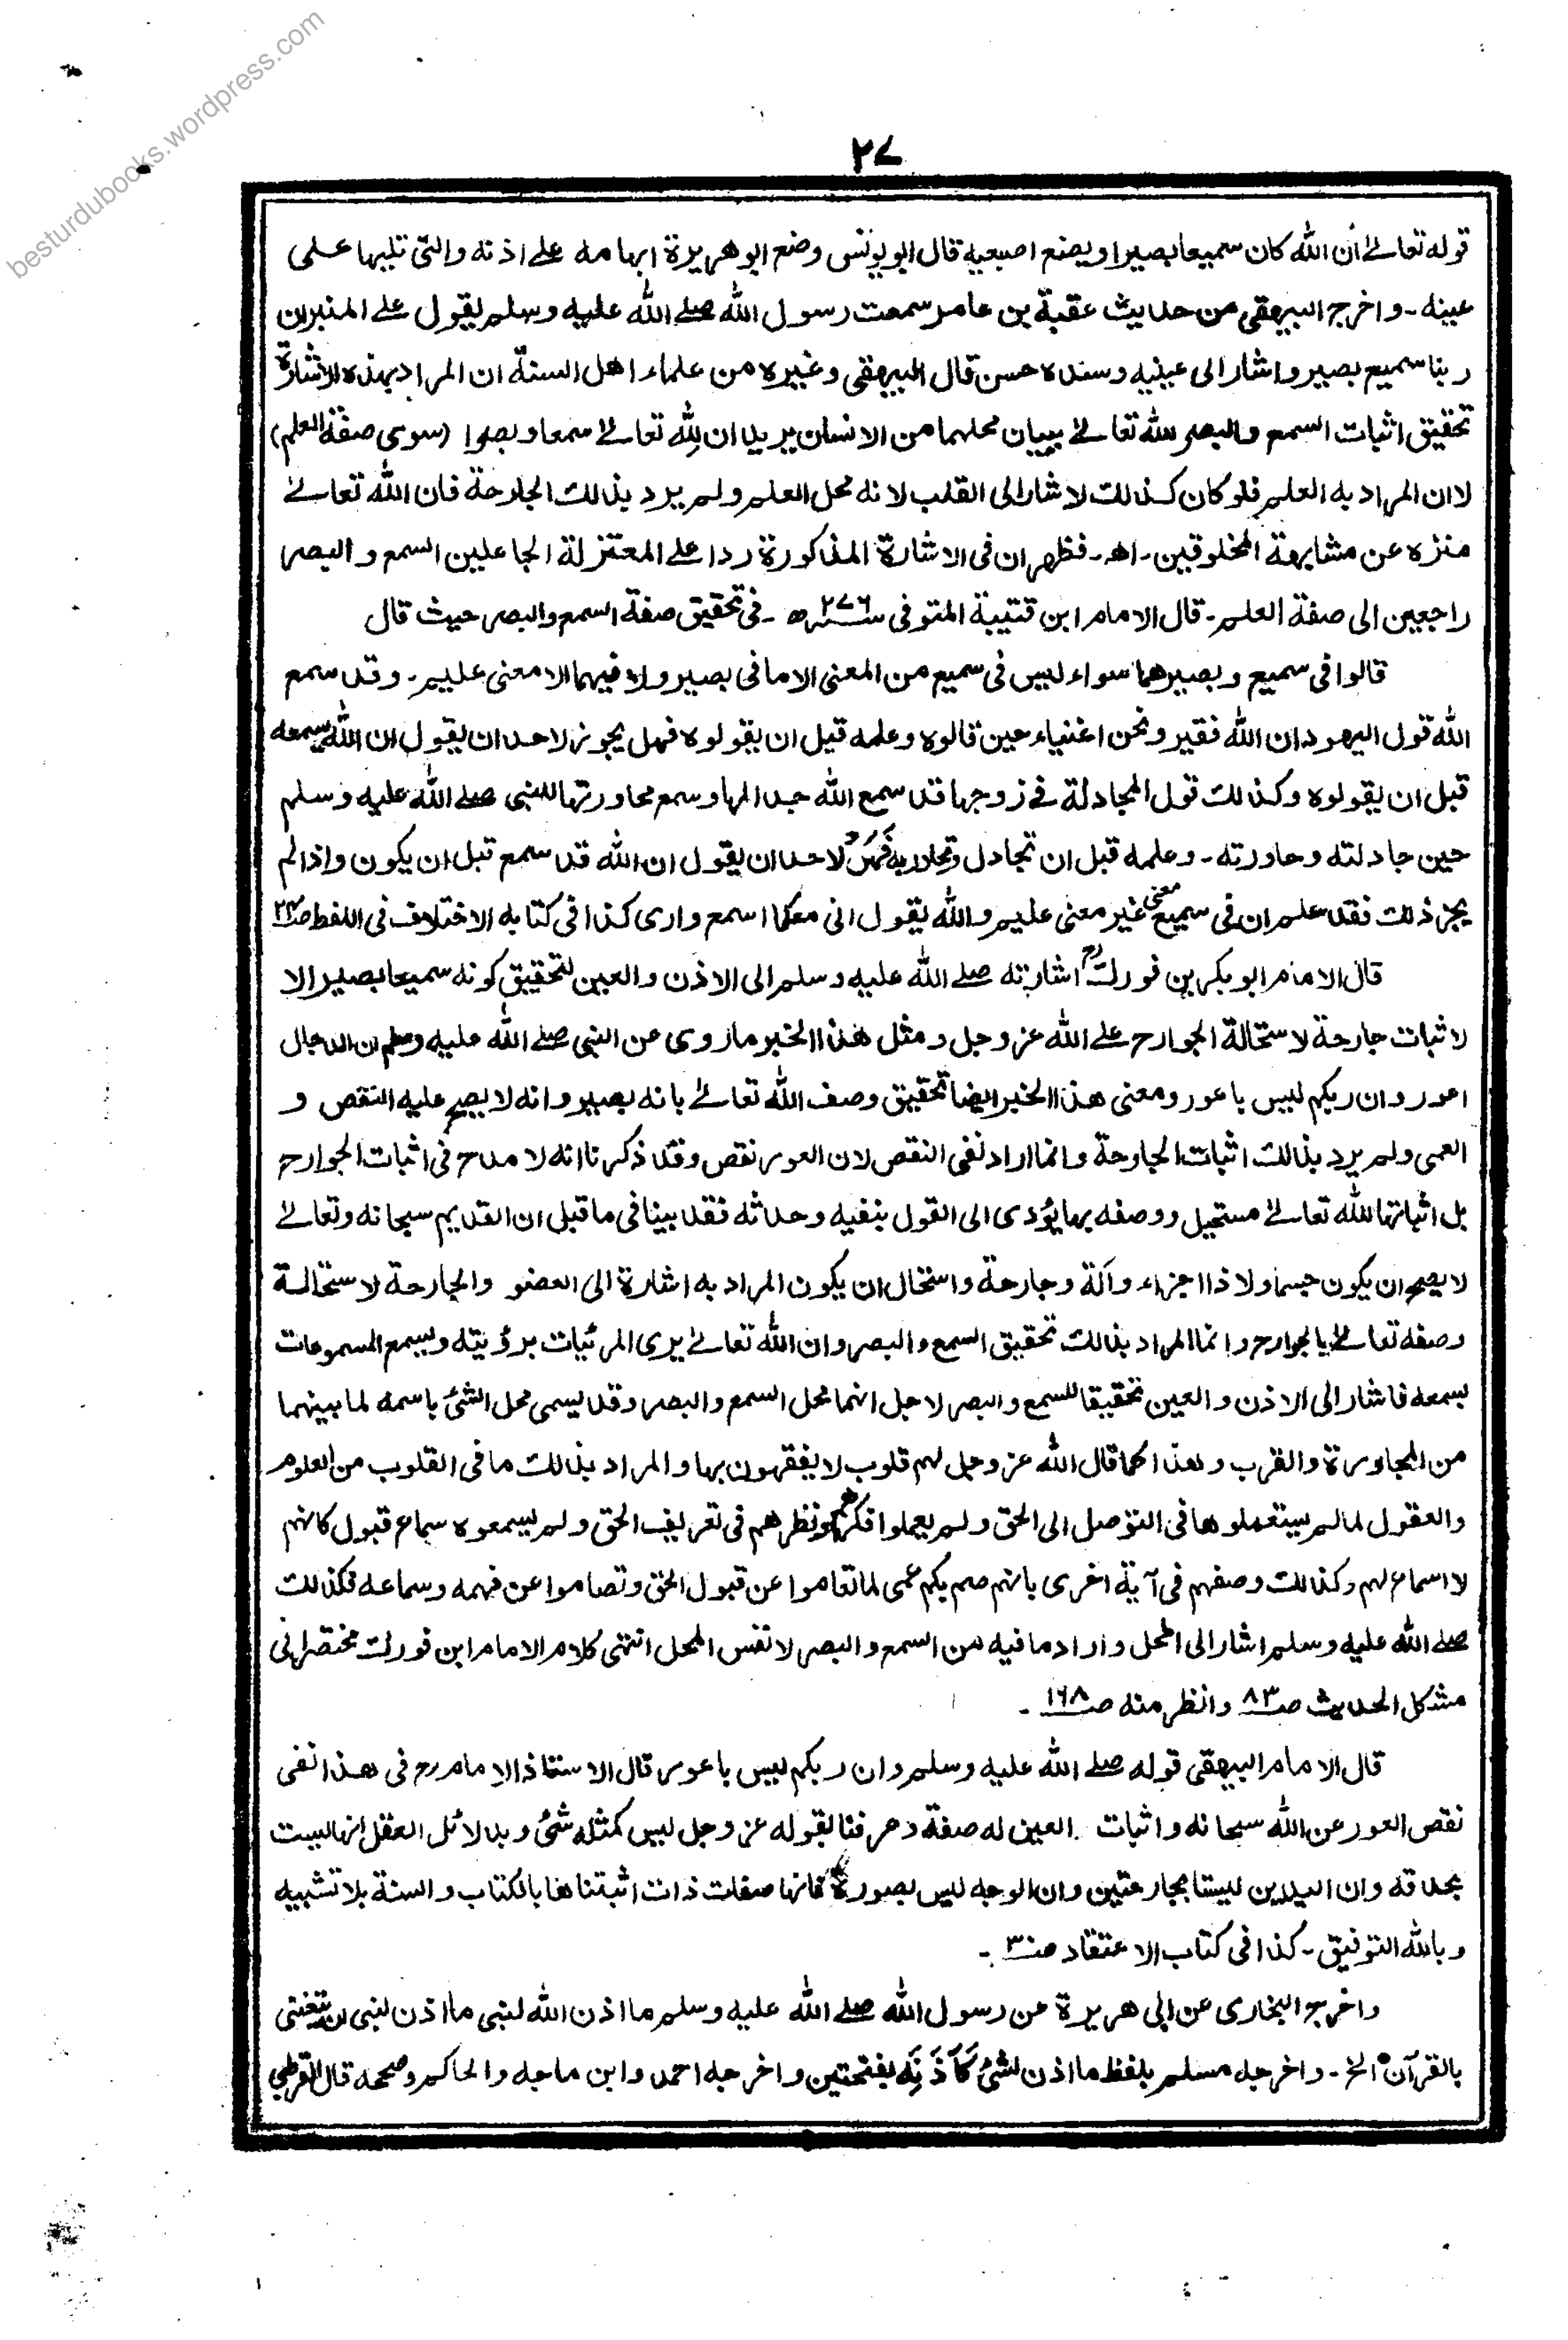 besturdubooks.wordpress.com
٢٧
قوله تعالے أن الله كان سميعا بصيرا ويضع اصبعيه قال ابو يونس وضع ابو هريرة ابهامه علے اذنه والتى تليها على
عينه - واخرج البيهقى من حديث عقبة بن عامر سمعت رسول الله صلے الله عليه وسلم يقول علے المنبر ان
ربنا سميع بصير واشار الى عينيه وسنده حسن قال البيهقى وغيره من علماء اهل السنة ان المراد بهذه الاشارة
تحقيق اثبات السمع والبصر لله تعالے ببيان محلهما من الانسان يريد ان لله تعالے سمعا وبصرا (سوى صفة العلم)
لا ان المراد به العلم فلو كان كذلك لاشار الى القلب لانه محل العلم ولم يرد بذلك الجارحة فان الله تعالے
منزه عن مشابهة المخلوقين - اھ - فظهر ان فى الاشارة المذكورة ردا علے المعتزلة الجاعلين السمع والبصر
راجعين الى صفة العلم - قال الامام ابن قتيبة المتوفى سنة ٢٧٦ ھ - فى تحقيق صفة السمع والبصر حيث قال
قالوا فى سميع وبصير هما سواء ليس فى سميع من المعنى الا ما فى بصير ولا فيهما الا معنى عليم - وقد سمع
الله قول اليهود ان الله فقير ونحن اغنياء حين قالوه وعلمه قبل ان يقولوه فهل يجوز لاحد ان يقول ان الله يسمعه
قبل ان يقولوه وكذلك قول المجادلة فى زوجها قد سمع الله جدالها وسمع محاورتها للنبى صلے الله عليه وسلم
حين جادلته وحاورته - وعلمه قبل ان تجادل وتحاور به فهل لاحد ان يقول ان الله قد سمع قبل ان يكون واذا لم
يجز ذلك فقد علم ان فى سميع معنى غير معنى عليم والله يقول انى معكما اسمع وارى كذا فى كتابه الاختلاف فى اللفظ صـ
قال الامام ابو بكر بن فورك رح اشارته صلے الله عليه وسلم الى الاذن والعين لتحقيق كونه سميعا بصيرا لا
لاثبات جارحة لاستحالة الجوارح علے الله عز وجل ومثل هذا الخبر ما روى عن النبى صلے الله عليه وسلم ان الدجال
اعور وان ربكم ليس باعور ومعنى هذا الخبر ايضا تحقيق وصف الله تعالے بانه بصير وانه لا يصح عليه النقص و
العمى ولم يرد بذلك اثبات الجارحة وانما اراد نفى النقص لان العور نقص وقد ذكرنا انه لا مدح فى اثبات الجوارح
بل اثباتها لله تعالے مستحيل ووصفه بها يؤدى الى القول بنفيه وحدثه فقد بينا فى ما قبل ان القديم سبحانه وتعالے
لا يصح ان يكون جسما ولا ذا اجزاء وآلة وجارحة واستحال ان يكون المراد به اشارة الى العضو والجارحة لاستحالة
وصفه تعالے بالجوارح وانما المراد بذلك تحقيق السمع والبصر وان الله تعالے يرى المرئيات برؤيته ويسمع المسموعات
بسمعه فاشار الى الاذن والعين تحقيقا للسمع والبصر لاجل انهما محل السمع والبصر وقد يسمى محل الشئ باسمه لما بينهما
من المجاورة والقرب وهذا كما قال الله عز وجل لهم قلوب لا يفقهون بها والمراد بذلك ما فى القلوب من العلوم
والعقول لما لم يستعملوها فى التوصل الى الحق ولم يعملوا فكرهم ونظرهم فى تعريف الحق ولم يسمعوه سماع قبول كانهم
لا اسماع لهم وكذلك وصفهم فى آية اخرى بانهم صم بكم عمى لما تعاموا عن قبول الحق وتصاموا عن فهمه وسماعه فكذلك
صلے الله عليه وسلم اشار الى المحل واراد ما فيه من السمع والبصر لا نفس المحل انتهى كلام الامام ابن فورك مختصرا فى
مشكل الحديث صـ ٨٣ وانظر منه صـ ١٦٨ -
قال الامام البيهقى قوله صلے الله عليه وسلم وان ربكم ليس باعور قال الاستاذ الامام رح فى هذا نفى
نقص العور عن الله سبحانه واثبات العين له صفة وعرفنا بقوله عز وجل ليس كمثله شئ وبدلائل العقل انها ليست
بحدقة وان اليدين ليستا بجارحتين وان الوجه ليس بصورة فانها صفات ذات اثبتناها بالكتاب والسنة بلا تشبيه
وبالله التوفيق - كذا فى كتاب الاعتقاد صـ ٣٠ -
واخرج البخارى عن ابى هريرة عن رسول الله صلے الله عليه وسلم ما اذن الله لنبى ما اذن لنبى ان يتغنى
بالقرآن الخ - واخرجه مسلم بلفظ ما اذن لشئ كَأَذَنِه بفتحتين واخرجه احمد وابن ماجه والحاكم وصححه قال القرطبى